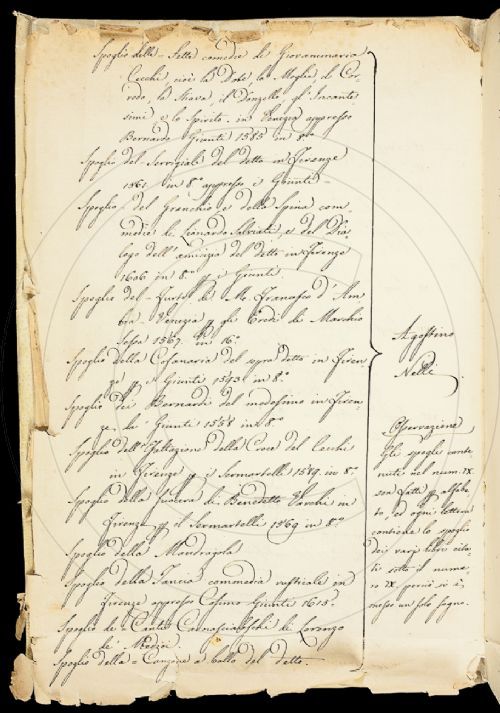 Spoglio delle Sette comedie di Giovanmaria
Cecchi, cioè la Dote, la Moglie, il Cor
redo, la Stiava, il Donzello, gl' Incante
simi, e lo Spirito. in Venezia appresso
Bernardo Giunti 1585 in 8.º
Spoglio del Servigiali del detto in Firenze
1561 in 8.º appresso i Giunti
Spoglio del Granchio e della Spina com
medie di Lionardo Salviati, e del Dia
logo dell' amicizia del detto in Firenze
1606 in 8.º i Giunti.
Spoglio del Furto di M. Francesco d' Am
bra Venezia gli Eredi di Marchio
Sessa 1567. in 16.º
Spoglio della Cofanaria del sopra detto in Firen
ze i Giunti 1593 in 8.º
Spoglio dei Bernardi del medesimo in Firen
ze, i Giunti 1558 in 8.º
Spoglio dell' Esaltazione della Croce del Cecchi
in Firenze i Sermartelli 1589. in 8.º
Spoglio della Suocera di Benedetto Varchi in
Firenze il Sermartelli 1569 in 8.º
Spoglio della Mandragola
Spoglio della Tancia commedia rusticale in
Firenze appresso Cosimo Giunti 1615.
Spoglio de Canti Carnascialeschi di Lorenzo
de' Medici.
Spoglio della Canzone a ballo del detto.
Agostino
Nelli
Osservazione
Gli spogli conte
nuti nel num. IX
son fatti alfabe
to, ed ogni lettera
contiene lo spoglio
dei varj libri cita
ti sotto il nume
ro IX. perciò si è
messo un solo segno.